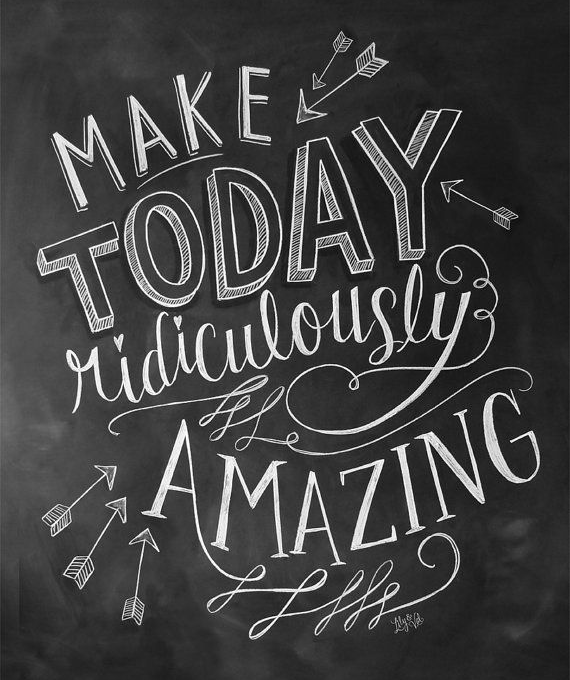 MAKE
TODAY
ridiculously
AMAZING
Lily & Val